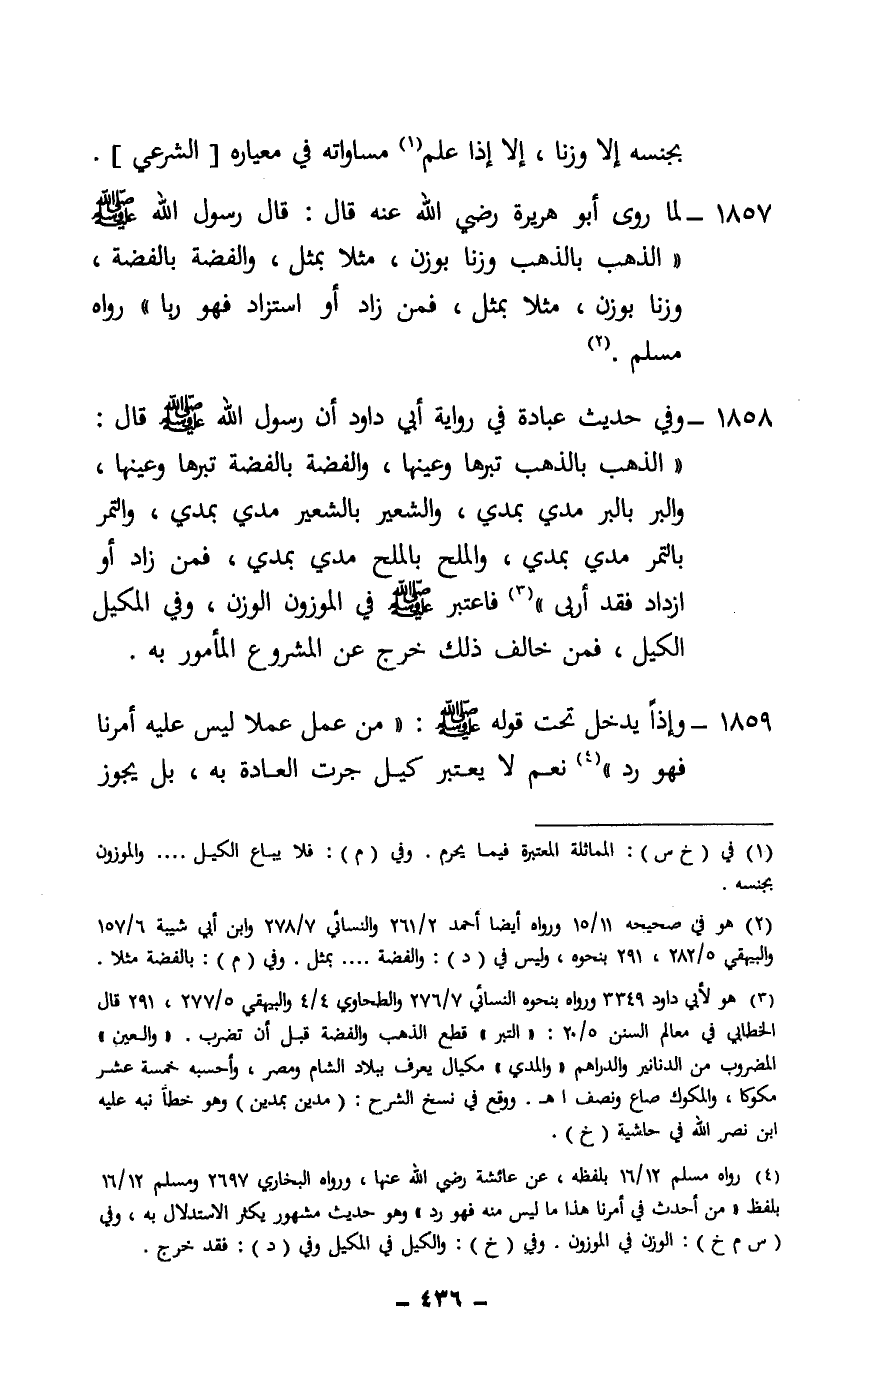 بجنسه إلا وزنا ، إلا إذا علم(١) مساواته في معياره [ الشرعي ] .
١٨٥٧ ـ لما روى أبو هريرة رضي الله عنه قال : قال رسول الله ﷺ
« الذهب بالذهب وزنا بوزن ، مثلا بمثل ، والفضة بالفضة ،
وزنا بوزن ، مثلا بمثل ، فمن زاد أو استزاد فهو ربا » رواه
مسلم .(٢)
١٨٥٨ ـ وفي حديث عبادة في رواية أبي داود أن رسول الله ﷺ قال :
« الذهب بالذهب تبرها وعينها ، والفضة بالفضة تبرها وعينها ،
والبر بالبر مدي بمدي ، والشعير بالشعير مدي بمدي ، والتمر
بالتمر مدي بمدي ، والملح بالملح مدي بمدي ، فمن زاد أو
ازداد فقد أربى »(٣) فاعتبر ﷺ في الموزون الوزن ، وفي المكيل
الكيل ، فمن خالف ذلك خرج عن المشروع المأمور به .
١٨٥٩ ـ وإذاً يدخل تحت قوله ﷺ : « من عمل عملا ليس عليه أمرنا
فهو رد »(٤) نعم لا يعتبر كيل جرت العادة به ، بل يجوز
(١) في ( خ س ) : المماثلة المعتبرة فيما يحرم . وفي ( م ) : فلا يباع الكيل .... والموزون
بجنسه .
(٢) هو في صحيحه ١٥/١١ ورواه أيضا أحمد ٢٦١/٢ والنسائي ٢٧٨/٧ وابن أبي شيبة ١٥٧/٦
والبيهقي ٢٨٢/٥ ، ٢٩١ بنحوه ، وليس في ( د ) : والفضة .... بمثل . وفي ( م ) : بالفضة مثلا .
(٣) هو لأبي داود ٣٣٤٩ ورواه بنحوه النسائي ٢٧٦/٧ والطحاوي ٤/٤ والبيهقي ٢٧٧/٥ ، ٢٩١ قال
الخطابي في معالم السنن ٢٠/٥ : « التبر » قطع الذهب والفضة قبل أن تضرب . « والعين »
المضروب من الدنانير والدراهم « والمدي » مكيال يعرف ببلاد الشام ومصر ، وأحسبه خمسة عشر
مكوكا ، والمكوك صاع ونصف ا هـ . ووقع في نسخ الشرح : ( مدين بمدين ) وهو خطأ نبه عليه
ابن نصر الله في حاشية ( خ ) .
(٤) رواه مسلم ١٦/١٢ بلفظه ، عن عائشة رضي الله عنها ، ورواه البخاري ٢٦٩٧ ومسلم ١٦/١٢
بلفظ « من أحدث في أمرنا هذا ما ليس منه فهو رد » وهو حديث مشهور يكثر الاستدلال به ، وفي
( س م خ ) : الوزن في الموزون . وفي ( خ ) : والكيل في المكيل وفي ( د ) : فقد خرج .
ـ ٤٣٦ ـ